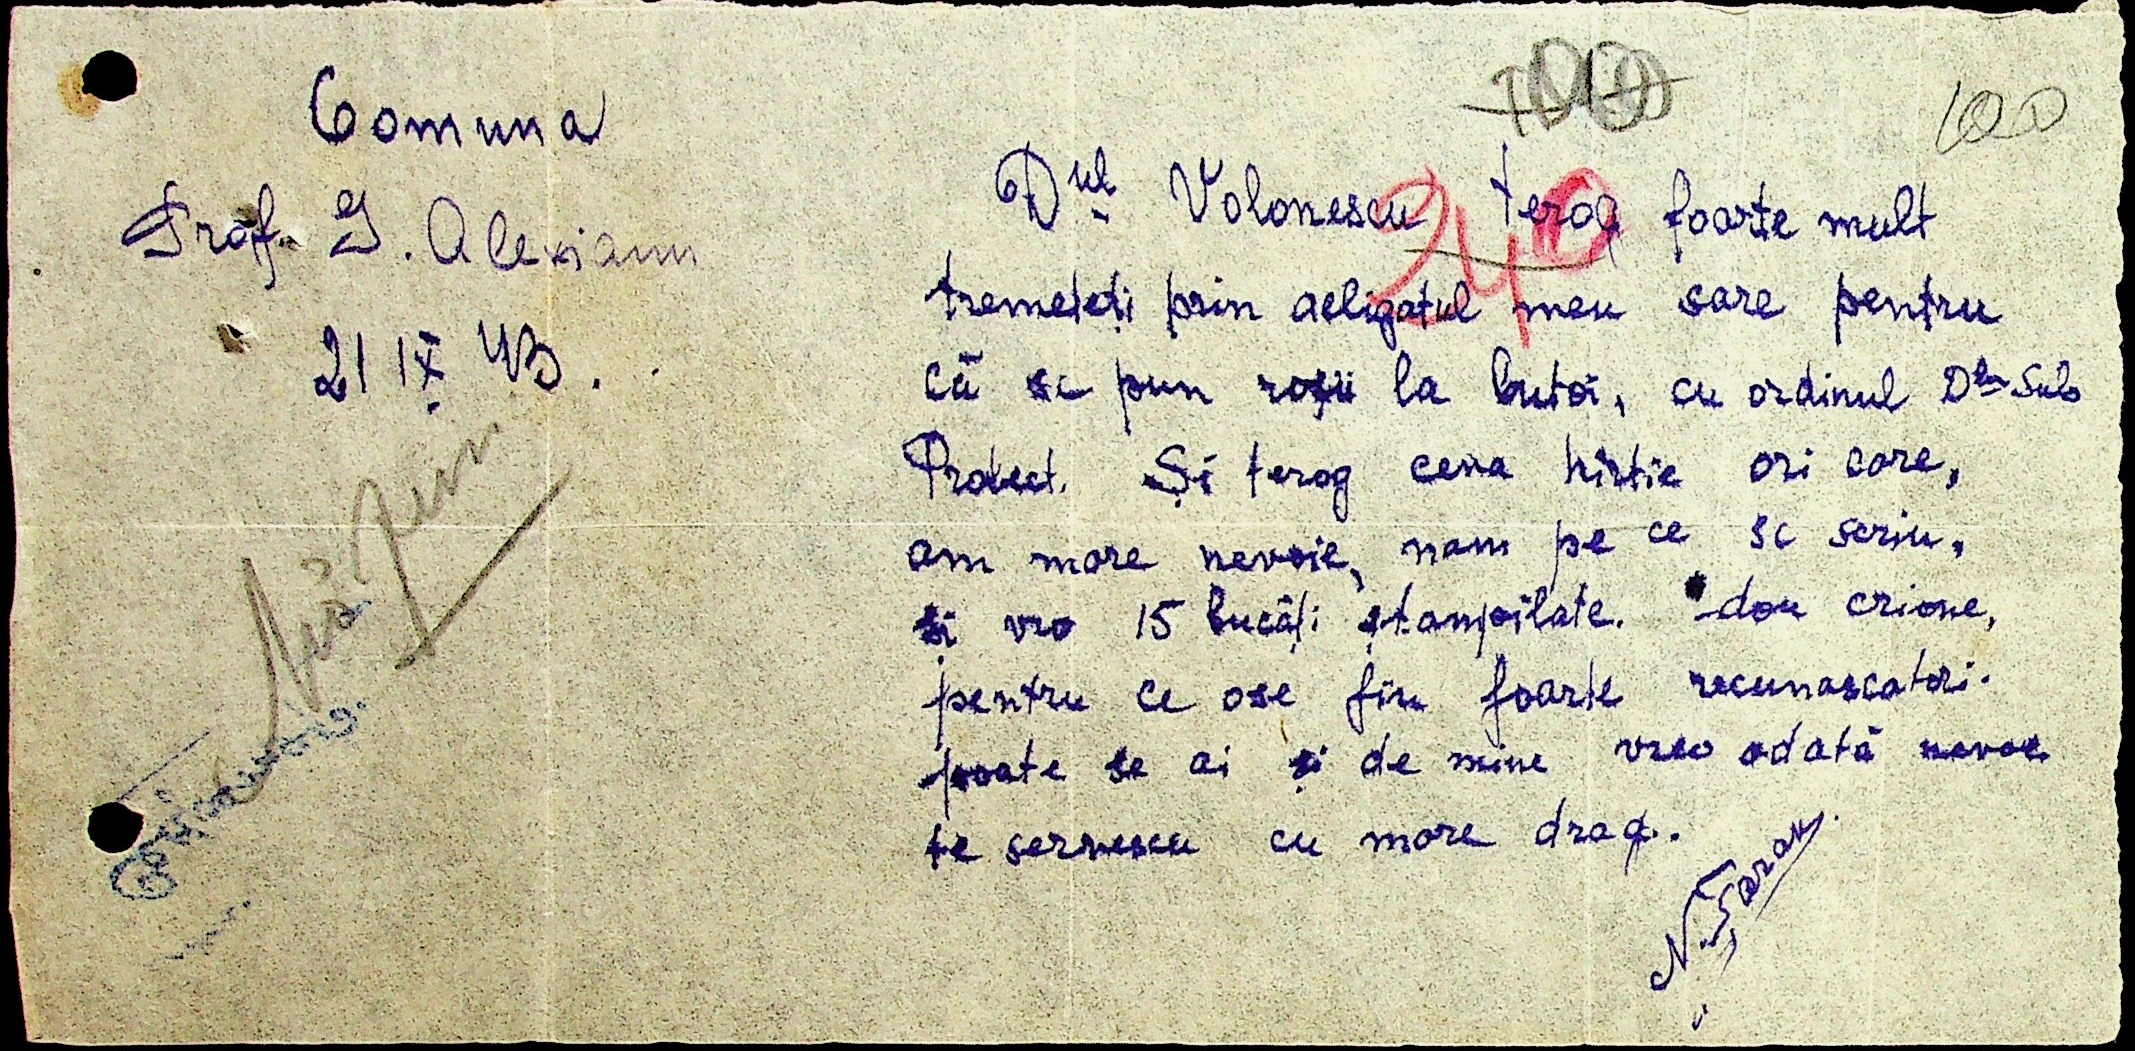 Comuna
Prof. G. Alexianu
21 IX 43.
100
240
Dul Volonescu terog foarte mult
tremeteți prin deligatul meu sare pentru
că se pun roșii la butoi, cu ordinul Dlui Sub
Prefect. Și terog ceva hîrtie ori care,
am mare nevoie, nam pe ce se scriu,
și vro 15 bucăți ștampilate. dou crione,
pentru ce ose fiu foarte recunascatori.
poate se ai și de mine vreo odată nevoe
te servescu cu more drag.
N. Țaran